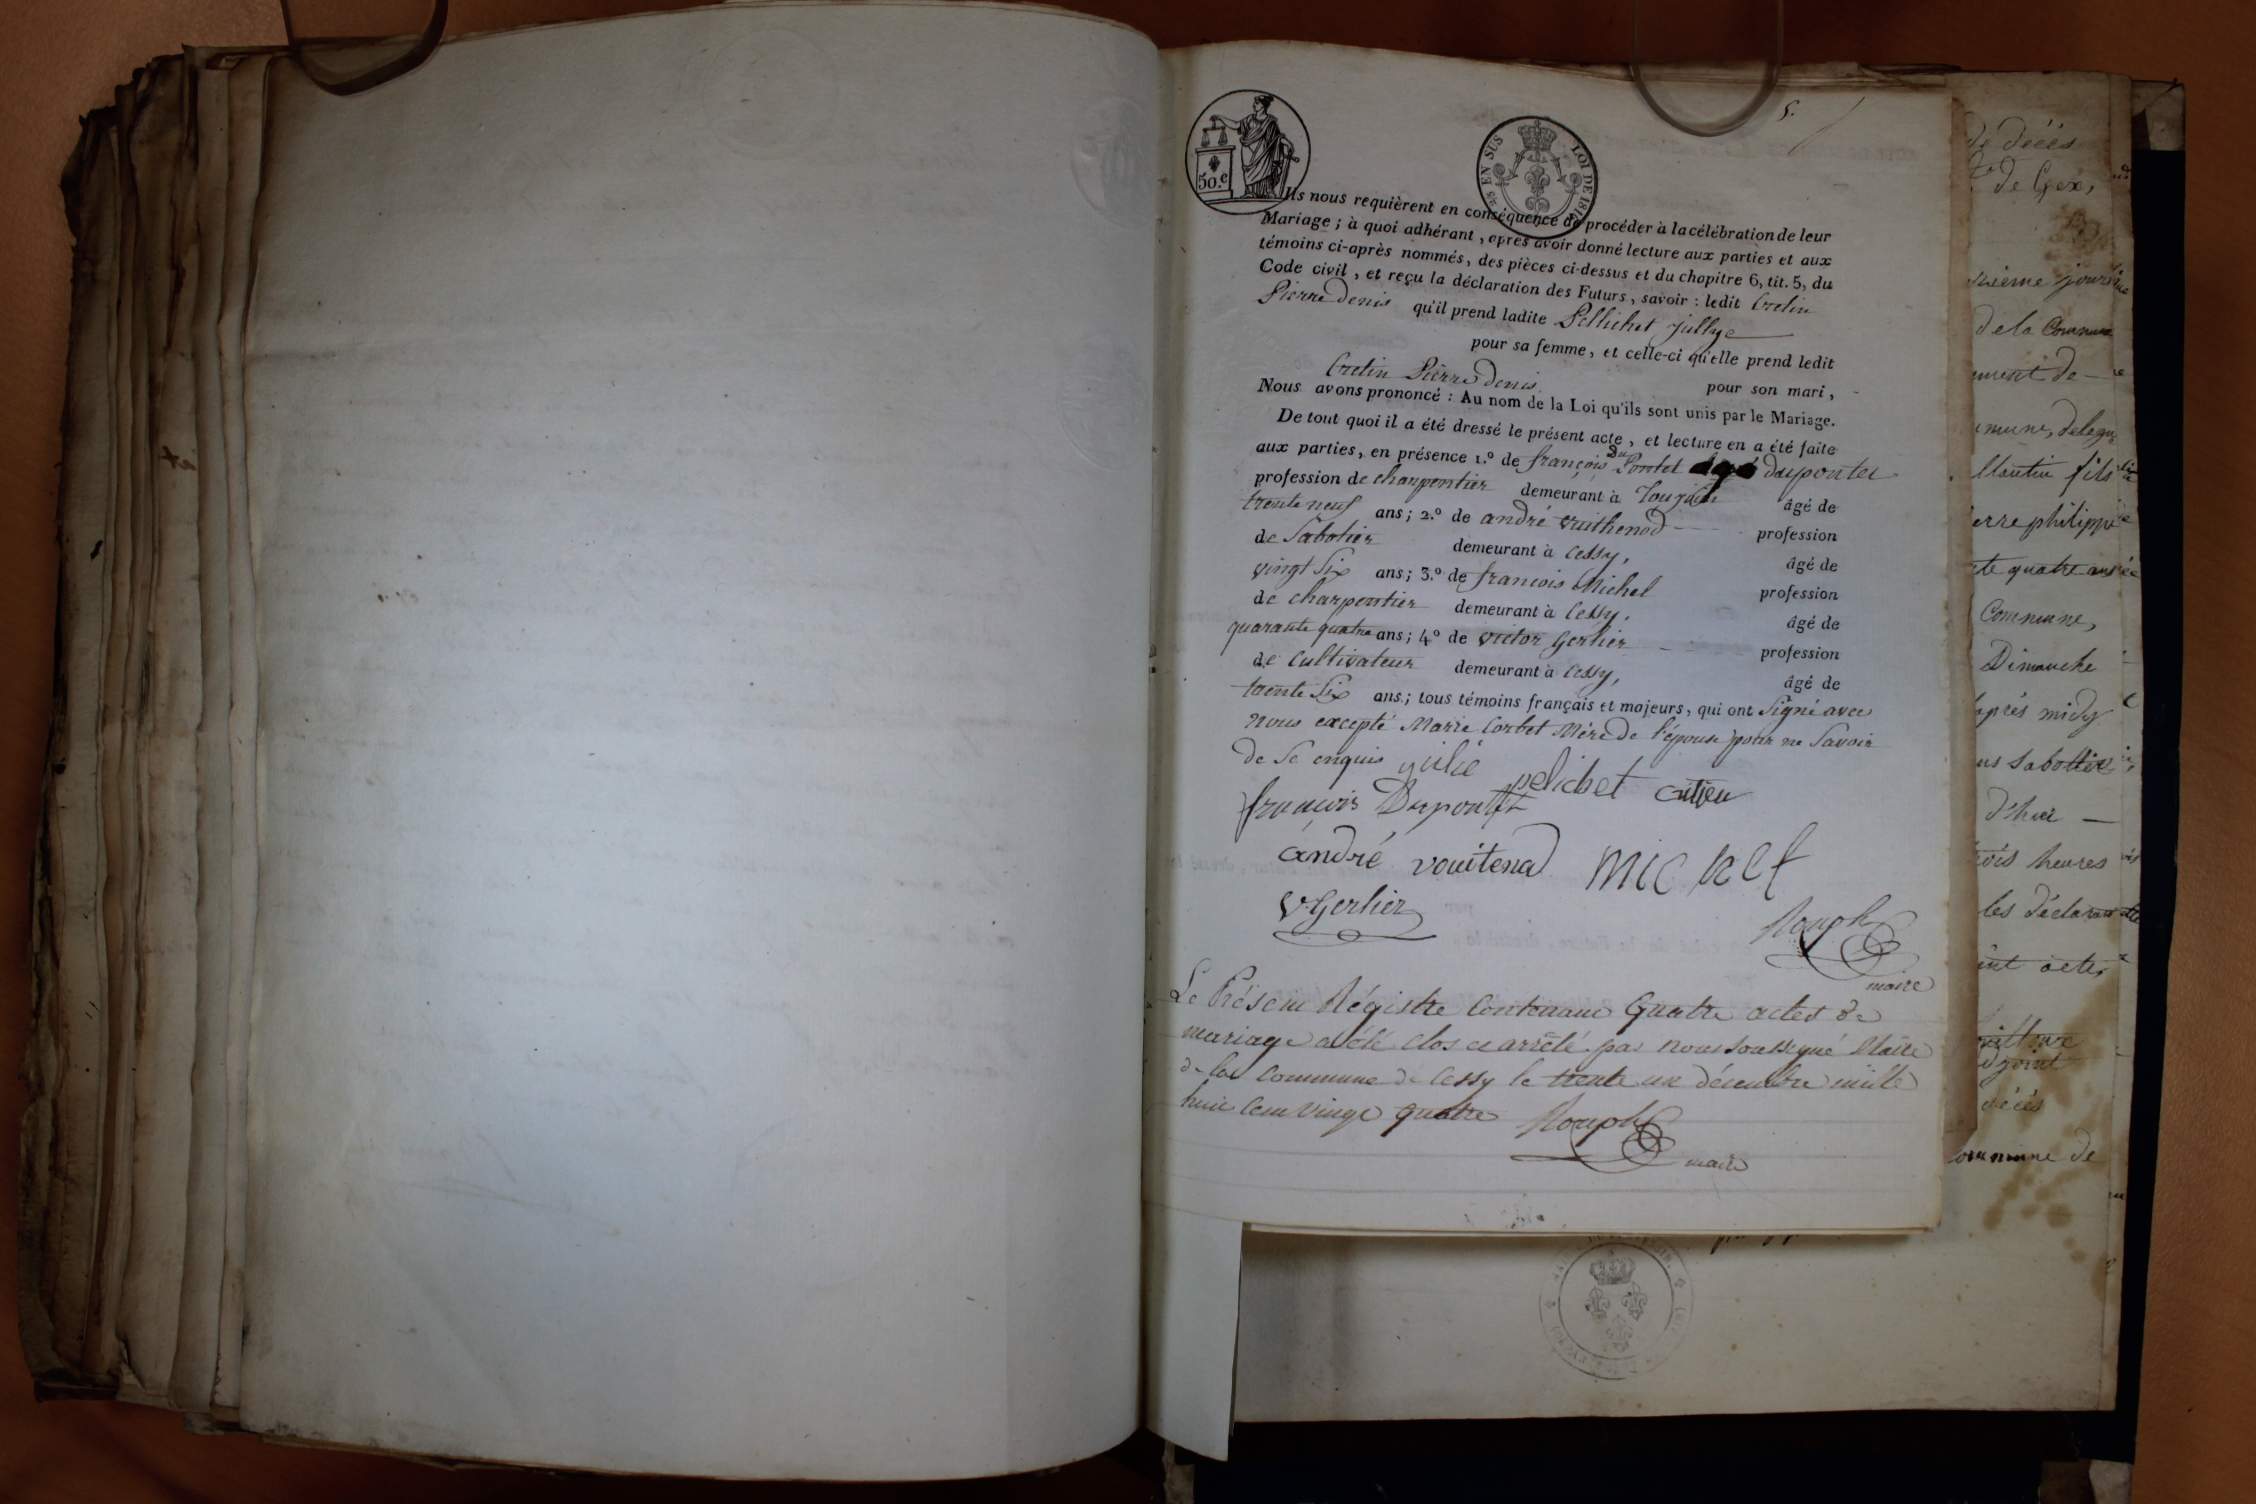 5.
50.c
EN SUS
LOI DE 1816
Ils nous requièrent en conséquence de procéder à la célébration de leur
Mariage ; à quoi adhérant, après avoir donné lecture aux parties et aux
témoins ci-après nommés, des pièces ci-dessus et du chapitre 6, tit. 5, du
Code civil, et reçu la déclaration des Futurs, savoir : ledit Cretin
Pierre denis qu'il prend ladite Pellichet jullye
pour sa femme, et celle-ci qu'elle prend ledit
Cretin Pierre denis pour son mari,
Nous avons prononcé : Au nom de la Loi qu'ils sont unis par le Mariage.
De tout quoi il a été dressé le présent acte, et lecture en a été faite
aux parties, en présence 1.º de françois Du Pontet Duponter
profession de charpentier demeurant à Tougin âgé de
trente neuf ans ; 2.º de andré vuithenod profession
de Sabotier demeurant à Cessy, âgé de
vingt Six ans ; 3.º de francois Michel profession
de charpentier demeurant à Cessy, âgé de
quarante quatre ans ; 4º de victor Gerlier profession
de Cultivateur demeurant à Cessy, âgé de
trente Six ans ; tous témoins français et majeurs, qui ont Signé avec
nous excepté Marie Corbet Mère de l'épouse pour ne Savoir
de Se enquis julie pelichet
françois Duponttet
andré vouitenod Michel
V. Gerlier
Rouph
maire
Le Présent Régistre Contenant Quatre actes de
mariage a été Clos et arrêté par nous soussigné Maire
de la Commune de Cessy le trente un décembre mille
huit Cent vingt quatre Rouph
maire
de décès
de Gex,
de la Commune
ment de
mune, delegu
Martin fils
erre philippe
te quatre ans
Commune,
Dimanche
après midy
us Sabottier
d'hier
trois heures
les déclarants
ent acte,
djoint
décès
ommune de